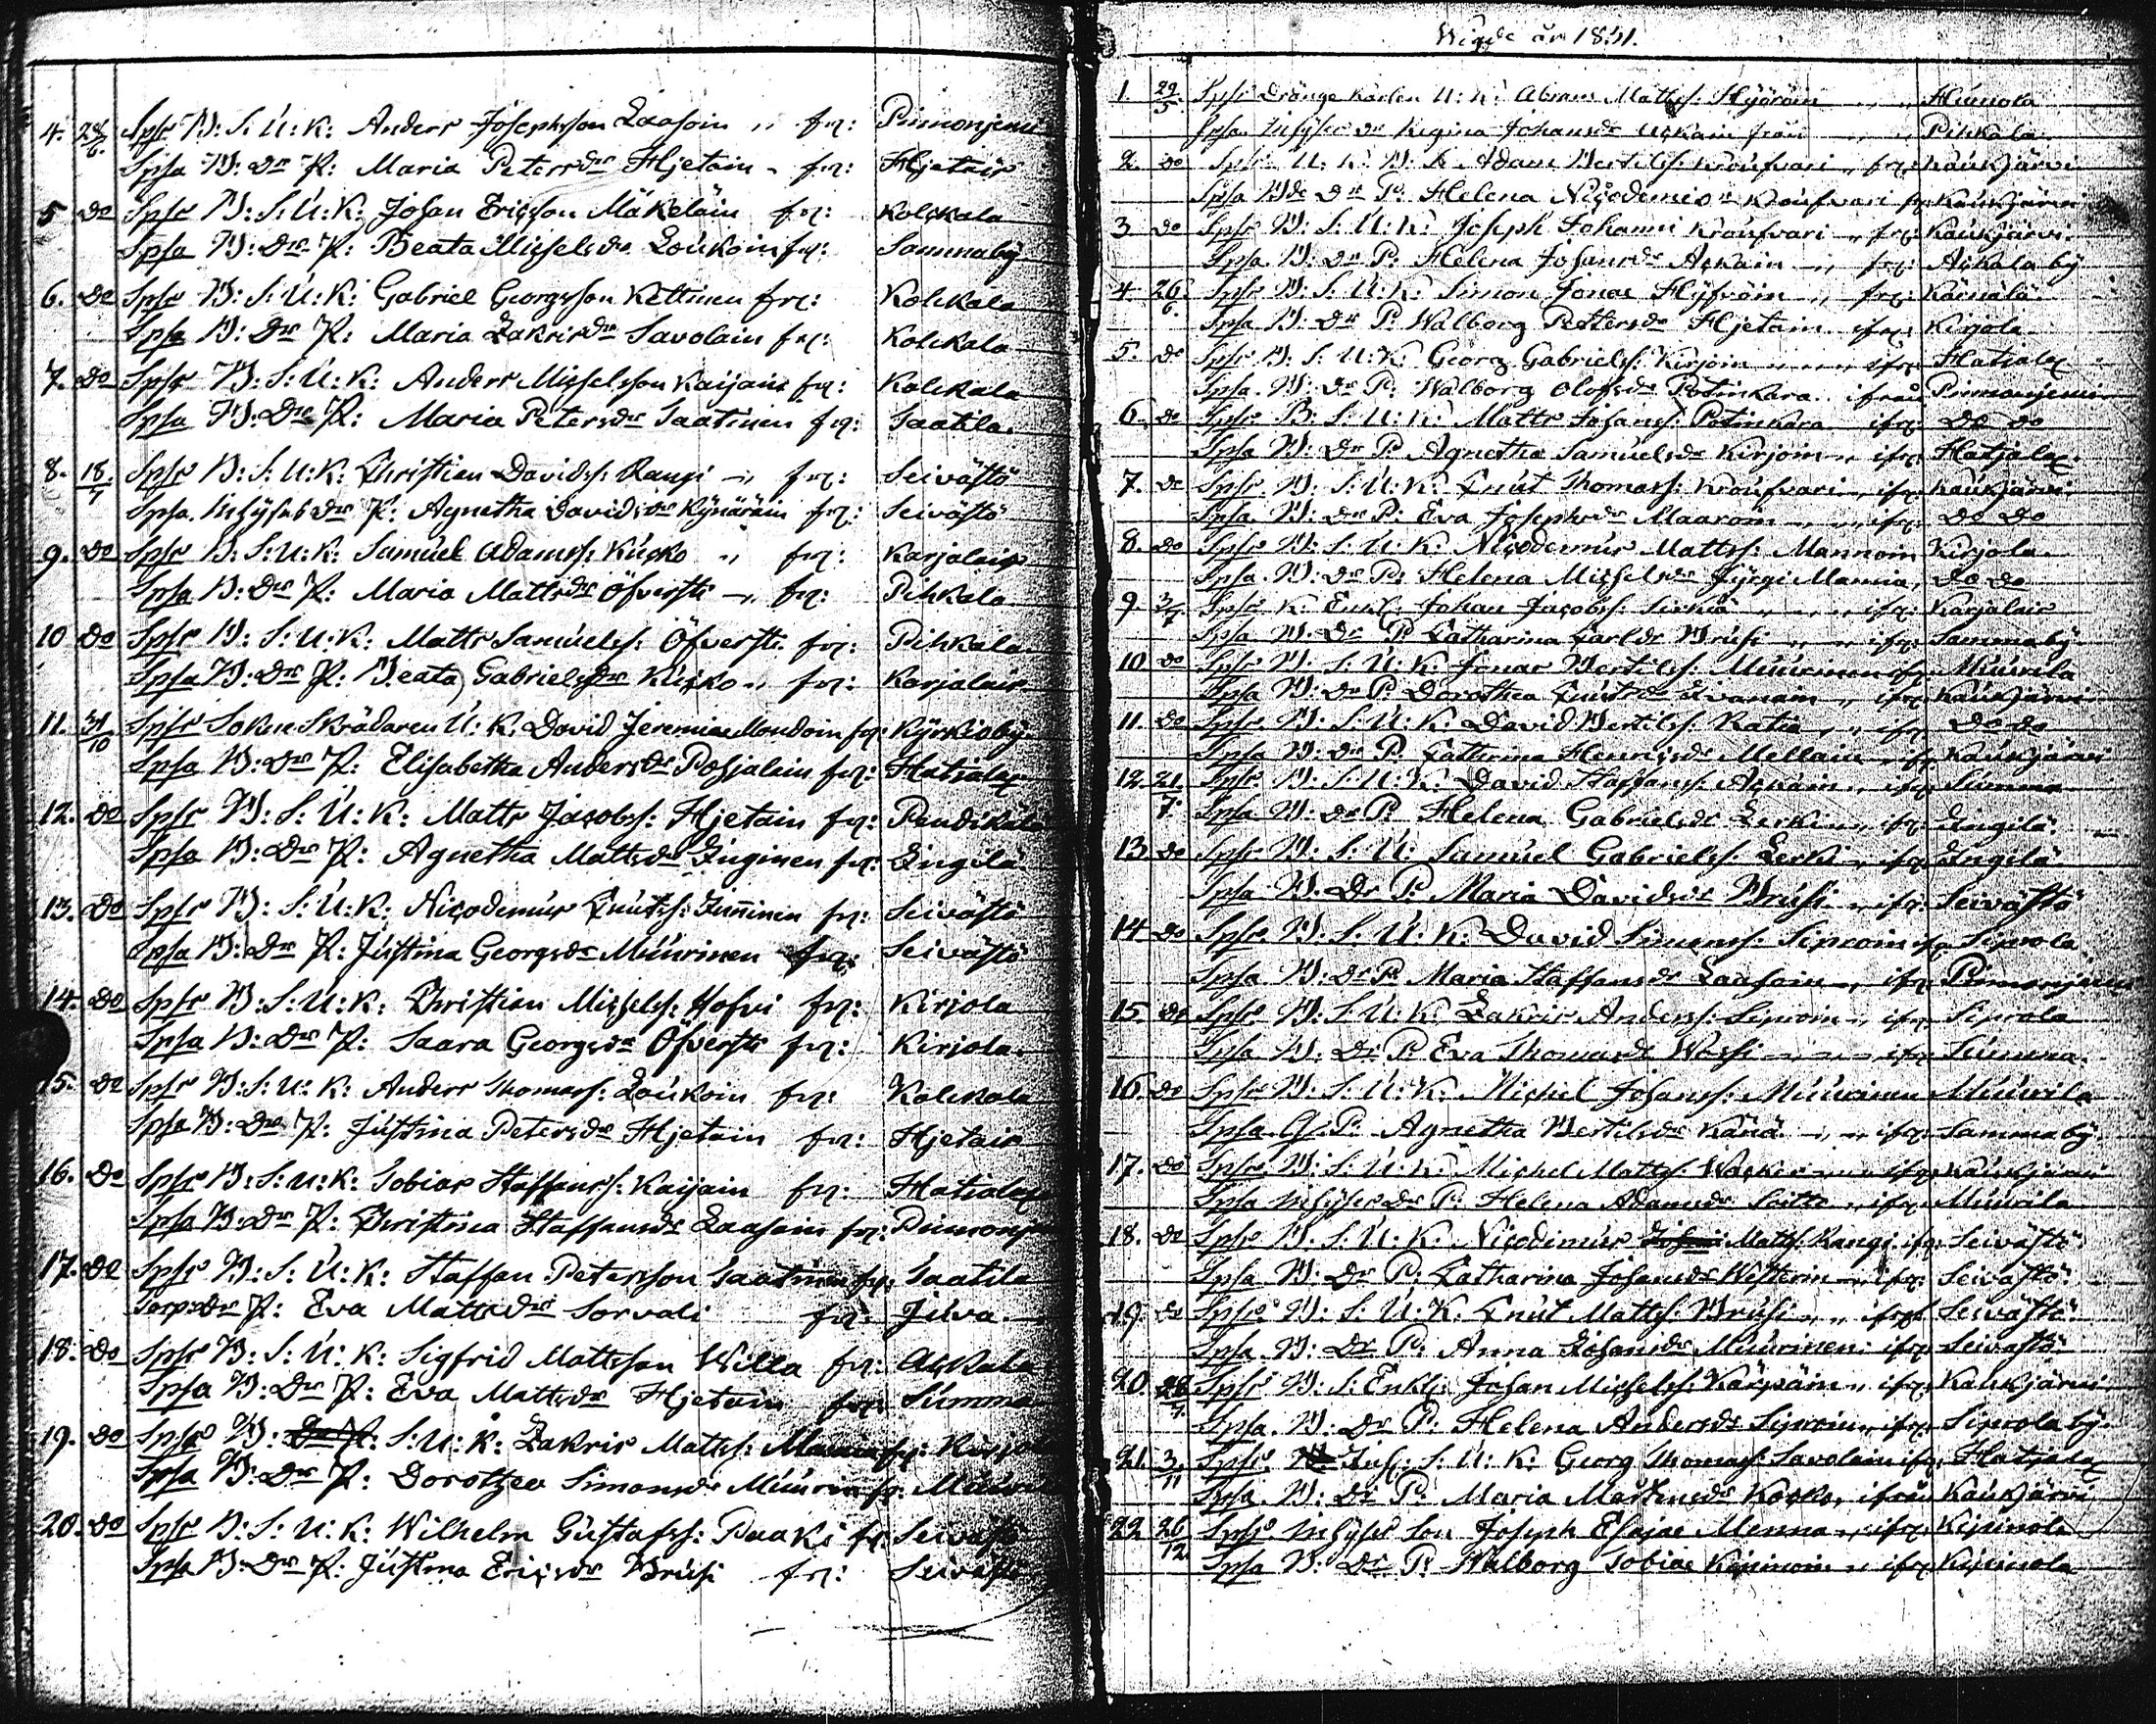 4. 28/6. Spsr B: S: U: K: Anders Josephsson Laasoin „ frn: Pinnonjemi
Spsa B: Dr P: Maria Petersdr Hjetain „ frn: Hjetais
5 Do Spsr B: S: U: K: Johan Ericsson Mäkeläin frn: Kolckala
Spsa B: Dr P: Beata Michelsdr Loukoin frn: Sommaby
6. Do Spsr B: S: U: K: Gabriel Georgsson Kettinen frn: Kolckala
Spsa B: Dr P: Maria Zakrisdr Savolain frn: Kolckala
7. Do Spsr B: S: U: K: Anders Michelsson Kaijain frn: Kolckala
Spsa B: Dr P: Maria Petersdr Taatinen frn: Taatila
8. 18/7 Spsr B: S: U: K: Christian Davidss: Rangi „ frn: Seivästö
Spsa Inhyses Dr P: Agnetha Davidsdr Kynäräin frn: Seivästö
9. Do Spsr B: S: U: K: Samuel Adamss: Kucko „ frn: Karjalais
Spsa B: Dr P: Maria Mattsdr Öfversti „ frn: Pihkala
10 Do Spsr B: S: U: K: Matts Samuelss: Öfversti frn: Pihkala
Spsa B: Dr P: Beata Gabrielsdr Kucko „ frn: Karjalais
11. 31/10 Spsr Soken Skrädaren U: K: David Jeremiae Mondoin frn: Kyrkioby
Spsa B: Dr P: Elisabetha Andersdr Pohjalain frn: Hatialax
12. Do Spsr B: S: U: K: Matts Jacobss: Hjetain frn: Pendikälä
Spsa B: Dr P: Agnetha Mattsdr Inginen frn: Ingilä
13. Do Spsr B: S: U: K: Nicodemus Cnutss: Iininen frn: Seivästö
Spsa B: Dr P: Justina Georgsdr Muurinen frn: Seivästö
14. Do Spsr B: S: U: K: Christian Michelss: Hofvi frn: Kirjola
Spsa B: Dr P: Saara Georgsdr Öfversti frn: Kirjola
15. Do Spsr B: S: U: K: Anders Thomass: Loukoin frn: Kolckala
Spsa B: Dr P: Justina Petersdr Hjetain frn: Hjetais
16. Do Spsr B: S: U: K: Tobias Staffanss: Kaijain frn: Hatialax
Spsa B: Dr P: Christina Staffansdr Laasoin frn: Pinnonj
17. Do Spsr B: S: U: K: Staffan Petersson Taatinen frn: Taatila
Torpr Dr P: Eva Mattsdr Sorvali frn: Juva
18. Do Spsr B: S: U: K: Sigfrid Mattsson Willa frn: Ackala
Spsa B: Dr P: Eva Mattsdr Hjetain frn: Summa
19. Do Spsr B: S: U: K: Zakris Mattss: frn:
Spsa B: Dr P: Dorothea Simonsdr Muurin fr: Muuri
20. Do Spsr B: S: U: K: Wilhelm Gustafss: Paaki fr: Seiväst
Spsa B: Dr P: Justina Ericsdr Brusi frn: Seiväst
Wigde år 1831.
1. 29/5. Spsr Dränge Karlen U: K: Abram Mattss: Hyöröin „ „ Humola
Spsa Inhyses Dr Regina Johansdr Ackain från Pihkala
2. Do Spsr U: K: B: S: Adam Bertilss: Kroufvari „ frn: Kaukjärvi
Spsa Bde Dr P: Helena Nicodemisdr Kroufvari frn: Kaukjärvi
3 Do Spsr B: S: U: K: Joseph Johanni Kroufvari „ frn: Kaukjärvi
Spsa B: Dr P: Helena Johansdr Ackain „ frn: Ackala by
4 26/6. Spsr B: S: U: K: Simon Jonae Hyfröin „ frn: Kärnälä
Spsa B: Dr P: Walborg Pettersdr Hjetain ifrn: Kirjola
5. Do Spsr B: S: U: K: Georg Gabrielss: Kirjoin „ „ ifrn: Hatialax
Spsa B: Dr P: Walborg Olofsdr Potinkara ifrån Pinnonjemi
6. Do Spsr B: S: U: K: Matts Johanss: Potinkara ifrn: Do Do
Spsa B: Dr P: Agnetha Samuelsdr Kirjoin „ ifrn: Hatjalax
7. Do Spsr B: S: U: K: Cnut Thomass: Kroufvari „ ifrn: Kaukjärvi
Spsa B: Dr P: Eva Josephsdr Maaroin „ „ ifrn: Do Do
8. Do Spsr B: S: U: K: Nicodemus Mattss: Mannoin Kirjola
Spsa B: Dr P: Helena Michelsdr Jyrgi Mannia, Do Do
9. 3/7 Spsr K: Enkl. Johan Jacobss: Sirkiä „ „ „ ifrn: Karjalais
Spsa B: Dr P: Catharina Carlsdr Brusi „ „ ifrn: Sommaby
10 Do Spsr B: S: U: K: Jonas Bertilss: Muurinen ifrn: Muurila
Spsa B: Dr P: Dorothea Cnutsdr Ivanain „ ifrn: Kaukjärvi
11. Do Spsr B: S: U: K: David Bertilss: Ratia „ „ ifrn: Do Do
Spsa B: Dr P: Cathrina Henricsdr Mellain „ ifrn: Kaukjärvi
12 21/7. Spsr B: S: U: K: David Staffanss: Ackain „ ifrn: Summa
Spsa B: Dr P: Helena Gabrielsdr Lerkin „ ifrn: Ingilä
13 Do Spsr B: S: U: Samuel Gabrielss: Lerki „ ifrn: Ingilä
Spsa B: Dr P: Maria Davidsdr Brusi „ ifrn: Seivästö
14 Do Spsr B: S: U: K: David Simonss: Siproin ifrn: Siprola
Spsa B: Dr P: Maria Staffansdr Laasoin „ ifrn: Pinnonjemi
15. Do Spsr B: S: U: K: Zakris Anderss: Siproin „ ifrn: Siprola
Spsa B: Dr P: Eva Thomasdr Wossi „ „ „ ifrn: Summa
16. Do Spsr B: S: U: K: Michel Johanss: Muurinen Muurila
Spsa P: Agnetha Bertilsdr Känä „ „ ifrn: Sommaby
17. Do Spsr B: S: U: K: Michel Mattss: „ „ ifrn: Kaukjärvi
Spsa Inhyses Dr P: Helena Adamsdr Soitto „ ifrn: Muurila
18. Do Spsr B: S: U: K: Nicodimus Mattss: Rangi ifrn: Seivästö
Spsa B: Dr P: Catharina Johansdr Westerin „ ifrn: Seivästö
19. Do Spsr B: S: U: K: Cnut Mattss: Brusi „ „ ifrn: Seivästö
Spsa B: Dr P: Anna Johansdr Muurinen ifrn: Seivästö
20. 28/7. Spsr B: S: Enkl: Johan Michelss: Kärpäin „ ifrn: Kaukjärvi
Spsa B: Dr P: Helena Andersdr Siproin „ ifrn: Siprola by
21. 3/11 Spsr Inh: S: U: K: Georg Thomass: Savolain ifrn: Hatjalax
Spsa B: Dr P: Maria Mårtensdr Kocko, ifrån Kaukjärvi
22 26/12. Spsr Inhyses Son Joseph Esajae Menna „ ifrn: Kipinola
Spsa B: Dr P: Walborg Tobiae Kipinoin „ ifrn: Kipinola